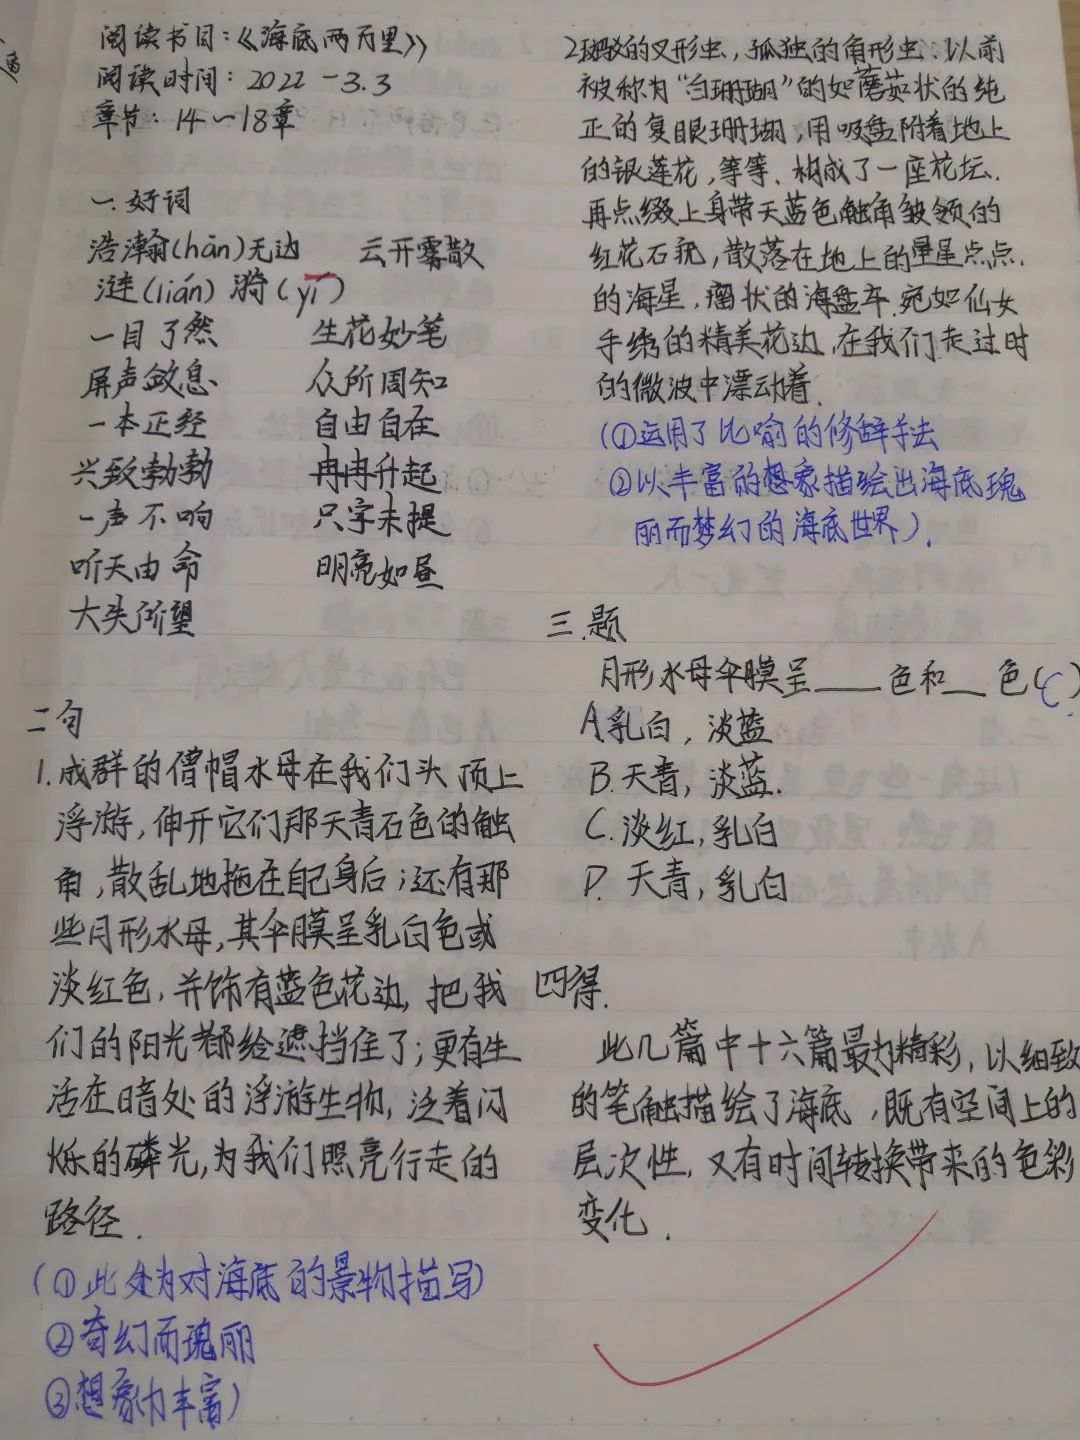 阅读书目:《海底两万里》
阅读时间:2022-3.3
章节:14～18章
一.好词
浩瀚(hàn)无边 云开雾散
涟(lián)漪(yī)
一目了然 生花妙笔
屏声敛息 众所周知
一本正经 自由自在
兴致勃勃 冉冉升起
一声不响 只字未提
听天由命 明亮如昼
大失所望
二句
1.成群的僧帽水母在我们头顶上
浮游,伸开它们那天青石色的触
角,散乱地拖在自己身后;还有那
些月形水母,其伞膜呈乳白色或
淡红色,并饰有蓝色花边,把我
们的阳光都给遮挡住了;更有生
活在暗处的浮游生物,泛着闪
烁的磷光,为我们照亮行走的
路径.
(①此处为对海底的景物描写)
②奇幻而瑰丽
③想象力丰富)
2斑驳的叉形虫,孤独的角形虫.以前
被称为“白珊瑚”的如蘑菇状的纯
正的复眼珊瑚,用吸盘附着地上
的银莲花,等等.构成了一座花坛.
再点缀上身带天蓝色触角皱领的
红花石疣,散落在地上的星星点点.
的海星,瘤状的海盘车.宛如仙女
手绣的精美花边,在我们走过时
的微波中漂动着.
(①运用了比喻的修辞手法
②以丰富的想象描绘出海底瑰
丽而梦幻的海底世界).
三.题
月形水母伞膜呈____色和__色(C)
A.乳白,淡蓝
B.天青,淡蓝.
C.淡红,乳白
D.天青,乳白
四得.
此几篇中十六篇最为精彩,以细致
的笔触描绘了海底,既有空间上的
层次性,又有时间转换带来的色彩
变化.